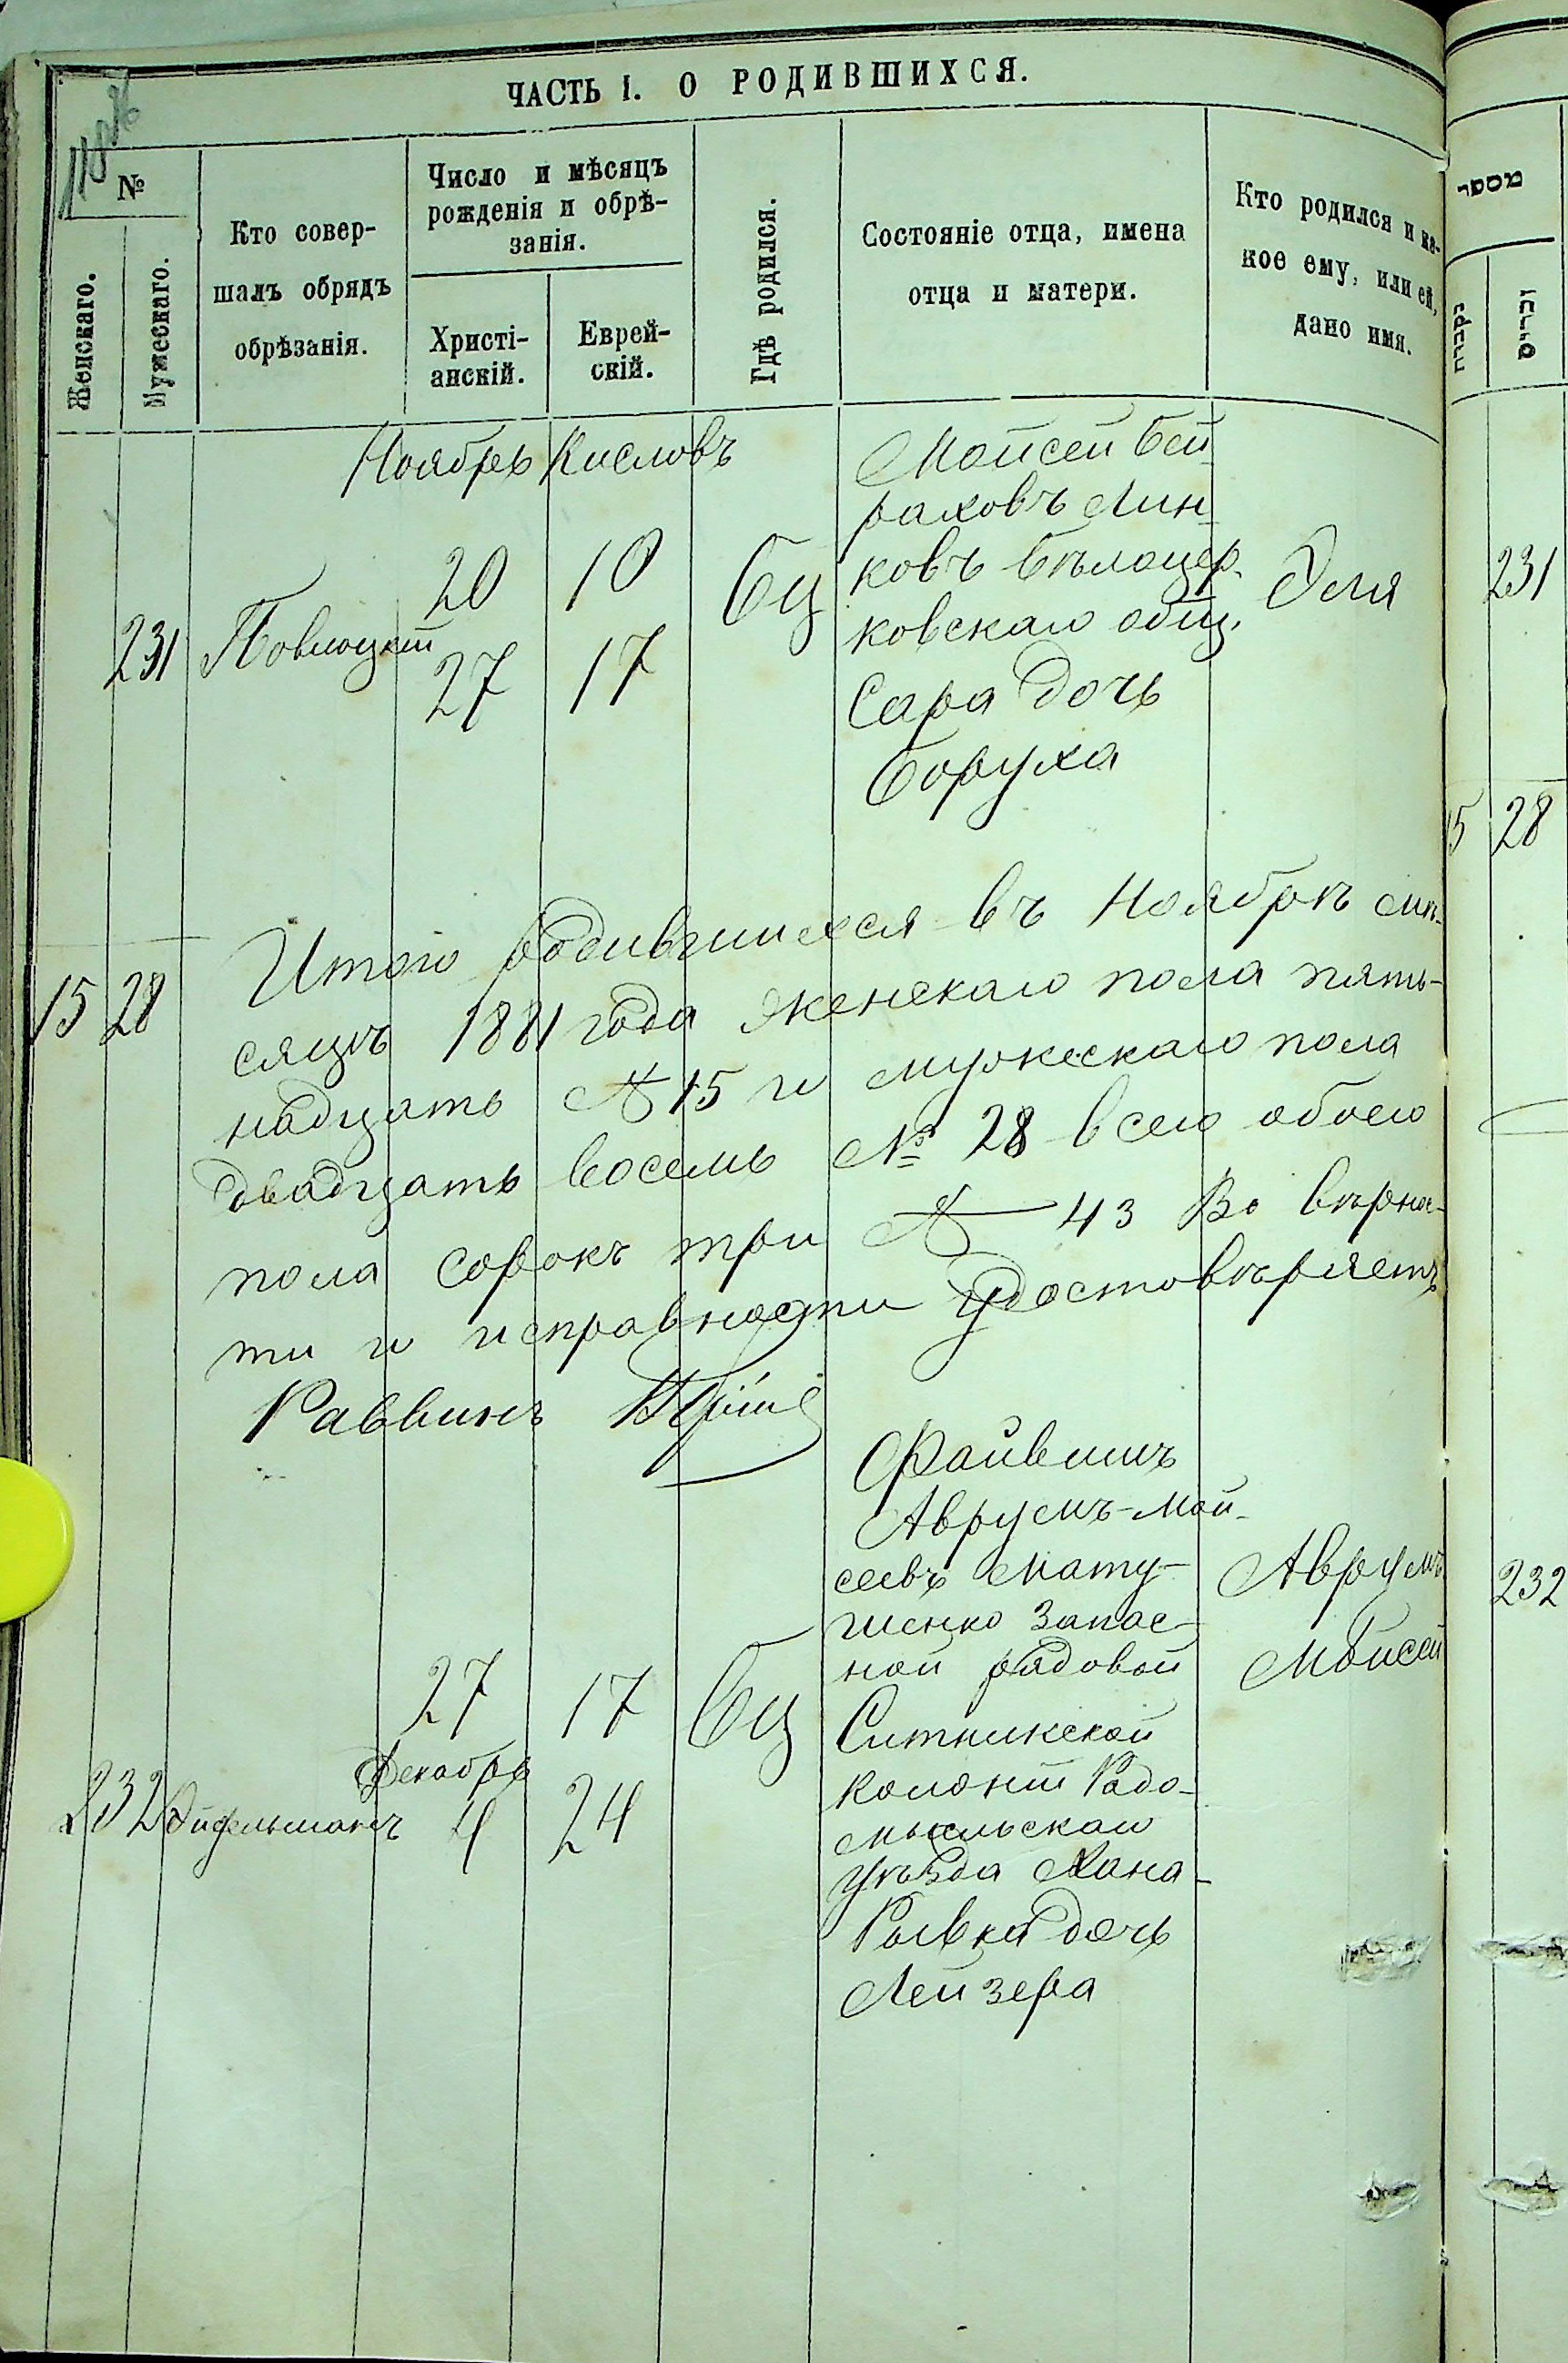 ЧАСТЬ I. О РОДИВШИХСЯ.
№
Женскаго.
Мужескаго.
Кто совер-
шалъ обрядъ
обрѣзанія.
Число и мѣсяцъ
рожденія и обрѣ-
занія.
Христі-
анскій.
Еврей-
скій.
Гдѣ родился.
Состояніе отца, имена
отца и матери.
Кто родился и ка-
кое ему, или ей,
дано имя.
Ноябрь Кисловъ
231
Повлоцкій
20 10
27 17
Бц
Мойсей Бей-
раховъ Лин-
ковъ Бѣлоцер-
ковскаго общ.
Сара дочь
Боруха
Эля
15 28
Итого родившихся въ Ноябрѣ мѣ-
сяцѣ 1881 года женскаго пола пять-
надцать № 15 и мужескаго пола
двадцать восемь № 28 всего обоего
пола сорокъ три № 43 Въ вѣрнос-
ти и исправности удостовѣряетъ
Раввинъ
232
Эйдельманъ
27 17
Декабрь
4 24
Бц
Файвишъ
Аврумъ-Мой-
сеевъ Мату-
шенко запас-
ной рядовой
Ситникской
колоніи Радо-
мысльскаго
уѣзда Хана-
Ривка дочь
Лейзера
Аврумъ
Мойсей
מספר
נקבות
זכרים
231
15 28
232